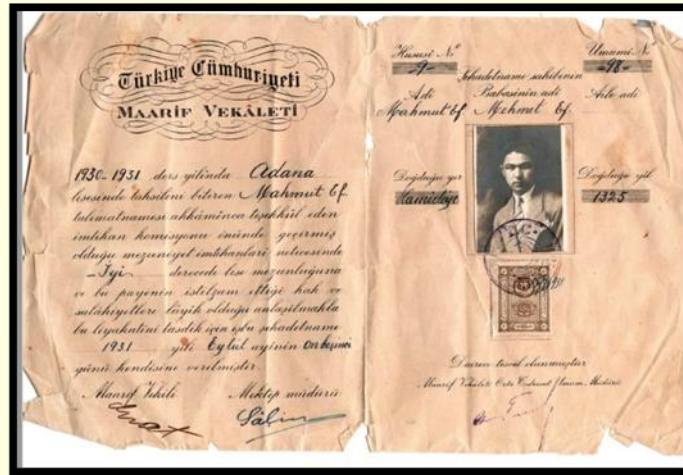 Türkiye Cümhuriyeti
MAARİF VEKÂLETİ
1930-1931 ders yılında Adana
lisesinde tahsilini bitiren Mahmut Ef.
talimatnamesi ahkâmınca teşekkül eden
imtihan komisyonu önünde geçirmiş
olduğu mezuniyet imtihanları neticesinde
-İyi- derecede lise mezunluğuna
ve bu payenin istilzam ettiği hak ve
salâhiyetlere lâyik olduğu anlaşılmakla
bu liyakatini tasdik için işbu şehadetname
1931 yılı Eylul ayinin on beşinci
günü kendisine verilmiştir.
Maarif Vekili
Mektep müdürü
Salim
Hususî No
-9-
Umumî No
-98-
Şehadetname sahibinin
Adi
Babasinin adi
Aile adi
Mahmut Ef.
Mehmet Ef.
Doğduğu yer
Hamidiye
Doğduğu yıl
1325
T.C.
Dairece tescil olunmuştur
Maarif Vekâleti Orta Tedrisat Umum Müdürü